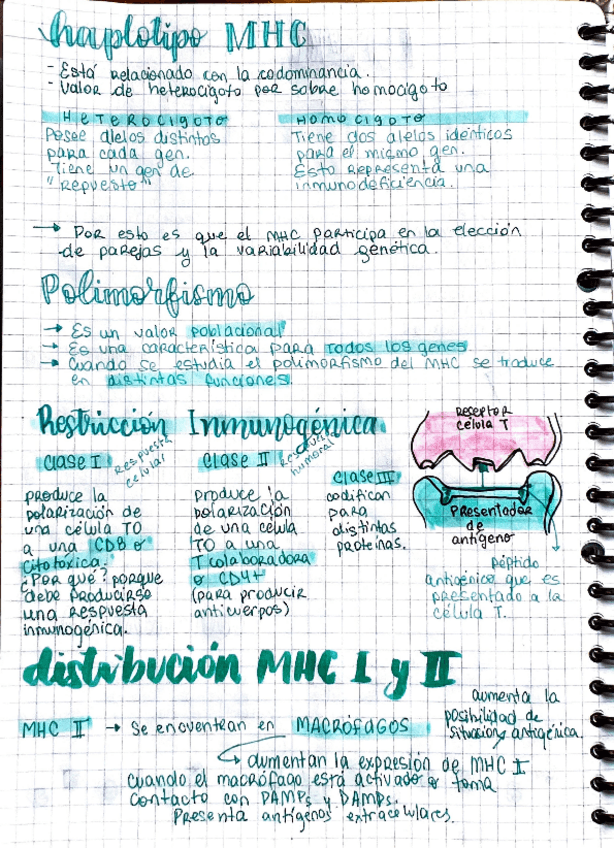 haplotipo MHC
- Está relacionado con la codominancia.
- Valor de heterocigoto por sobre homocigoto
HETEROCIGOTO
Posee alelos distintos
para cada gen.
Tiene un gen de
"repuesto"
HOMOCIGOTO
Tiene dos alelos idénticos
para el mismo gen.
Esto representa una
inmunodeficiencia.
→ Por esto es que el MHC participa en la elección
de parejas y la variabilidad genética.
Polimorfismo
→ Es un valor poblacional
→ Es una característica para todos los genes.
→ Cuando se estudia el polimorfismo del MHC se traduce
en distintas funciones.
Restricción Inmunogénica
clase I
Respuesta
celular
produce la
polarización de
una célula T0
a una CD8 o
citotóxica.
¿Por qué? porque
debe producirse
una respuesta
inmunogénica.
clase II
Respuesta
humoral
produce la
polarización
de una célula
T0 a una
T colaboradora
o CD4+
(para producir
anticuerpos)
clase III
codifican
para
distintas
proteínas.
Receptor
célula T
Presentador
de
antígeno
Péptido
antigénico que es
presentado a la
célula T.
distribución MHC I y II
MHC II → Se encuentran en MACRÓFAGOS
aumenta la
posibilidad de
situación antigénica.
aumentan la expresión de MHC I
cuando el macrófago está activado o toma
contacto con PAMPs y DAMPs.
Presenta antígenos extracelulares.